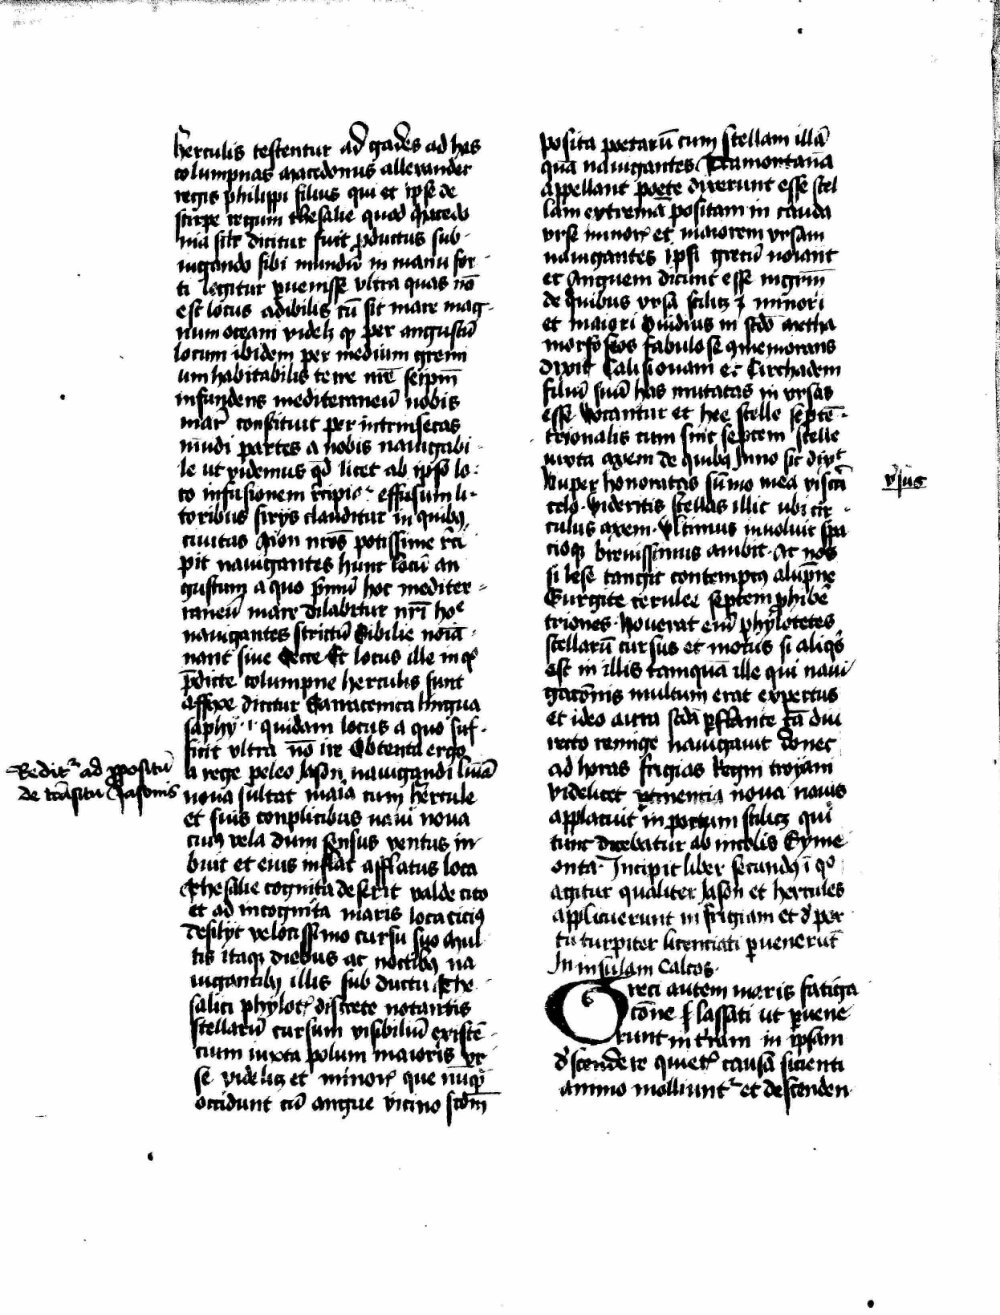 herculis testentur ad gades ad has
columpnas macedonus allexander
regis philippi filius qui et ipse de
stirpe regum thesalie quod macedo
nia silr dicitur fuit pductus sub-
iugando sibi mundū in manu for
ti legitur puenisse ultra quas nō
est locus adibilis cū sit mare mag-
num oceani videlz qp per angustū
locum ibidem per medium gremi
um habitabilis terre nrē seipm̄
infundens mediteraneū nobis
mar constituit per intrinsecas
mūdi partes a nobis nauigabi-
le ut videmus qd licet ab ipso lo:
co infusionem rcipiᵒ effusum li-
toribus sirijs clauditur in quibꝫ
ciuitas Acon nros potissime rci
pit nauigantes hunc locū an
gustum a quo pmū hoc mediter-
raneū mare dilabitur nrī hoᵉ
nauigantes strictū Sibilie noīa-
nant siue Cecte Et locus ille in qᵒ
pdicte columpne herculis sunt
affixe dicitur Sarracenica lingua
saphy · i · quidam locus a quo suf-
ficit ultra nō ire Obtenta ergo
a rege peleo Jason nauigandi licīa
noua sultat maīa cum hercule
et suis conplicibus naui noua
cuiꝫ vela dum sensus ventus im
buit et eius inflat afflatus loca
thesalie cognita deserit valde cito
et ad incognita maris loca cicius
desilijt velocissimo cursu suo mul
tis itaqꝫ diebus ac noctibꝫ na
uigantibꝫ illis sub ductu the
salici phylotᵉ discrete notantis
stellarū cursum visibiliū existē-
cium iuxta polum maioris vr
se videlicz et minorᵉ que nūqꝫ
occidunt cū angue vicino scdm̄
Reditᵘʳ ad ꝓpositū
de trāsitu Jasonis
posita poetarū cum stellam illā
quā nauigantes tramontanā
appellant poete dixerunt esse stel
lam extremā positam in cauda
vrse minorᵉ et maiorem vrsam
nauigantes ipsi grecū noīant
et Anguem dicunt esse mgrīm
de quibus vrsa scilicz ⁊ minori
et maiori Ouidius in scdo metha
morfoseos fabulose ꝯmemorans
dixit Calisionam et Circhadem
filiū suū has mutatas in vrsas
esse Vocantur et hee stelle septē-
trionalis cum sint septem stelle
iuxta axem de quibꝫ Juno sic dixᵗ
Nuper honoratas sūmo mea viscā
celo · videritis stellas illic ubi cir-
culus axem · Vltimus inuoluit spa
cioqꝫ breuissimus ambit · At nos
si lese tangit contemptꝫ alupne
Gurgite cerulee septem phibe
triones · Nouerat enī phylotetes
stellarū cursus et motus si aliqˢ
est in illis tamquā ille qui naui
gacōnis multum erat expertus
et ideo aura scda pflante tā diu
recto remige nauigauit donec
ad horas frigias Regni troyani
videlicet ptinencia noua nauis
applicuit in portum scilicz qui
tunc dicebatur ab incolis Syme
onta · Incipit liber secundꝫ ī qᵒ
agitur qualiter Jason et hercules
applicuerunt in frigiam et d' por
tu turpiter licenciati puenerūt
In insulam Calcos ·
Greci autem maris fatiga
cōne flassati ut puene
runt in trām in ipsam
d'scendere quietᵉ causa sicienti
animo molliuntᵘʳ et descenden
vˢsus